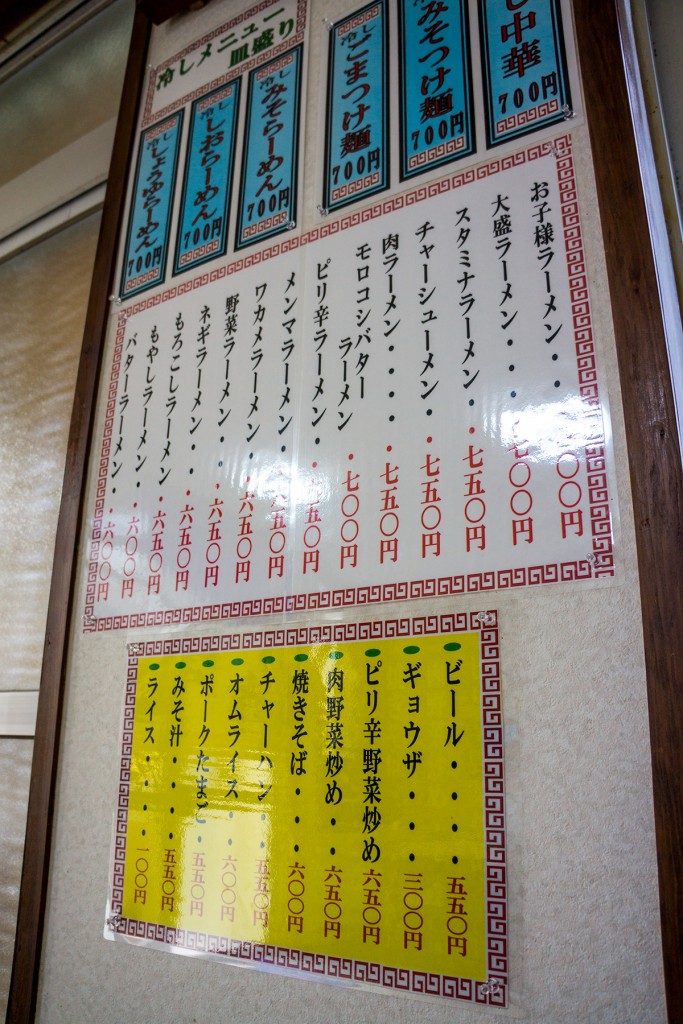 し中華 700円
みそつけ麺 700円
冷しごまつけ麺 700円
冷しメニュー
皿盛り
冷しみそらーめん 700円
冷ししおらーめん 700円
冷ししょうゆらーめん 700円
お子様ラーメン・・〇〇円
大盛ラーメン・・・七〇〇円
スタミナラーメン・・七五〇円
チャーシューメン・・七五〇円
肉ラーメン・・・・七五〇円
モロコシバター
ラーメン・七〇〇円
ピリ辛ラーメン・・五〇円
メンマラーメン・・六五〇円
ワカメラーメン・・六五〇円
野菜ラーメン・・・六五〇円
ネギラーメン・・・六五〇円
もろこしラーメン・六五〇円
もやしラーメン・・六〇〇円
バターラーメン・・六〇〇円
ビール・・・・五五〇円
ギョウザ・・・三〇〇円
ピリ辛野菜炒め 六五〇円
肉野菜炒め・・六五〇円
焼きそば・・・六〇〇円
チャーハン・・五五〇円
オムライス・・六〇〇円
ポークたまご・五五〇円
みそ汁・・・・五五〇円
ライス・・・・一〇〇円